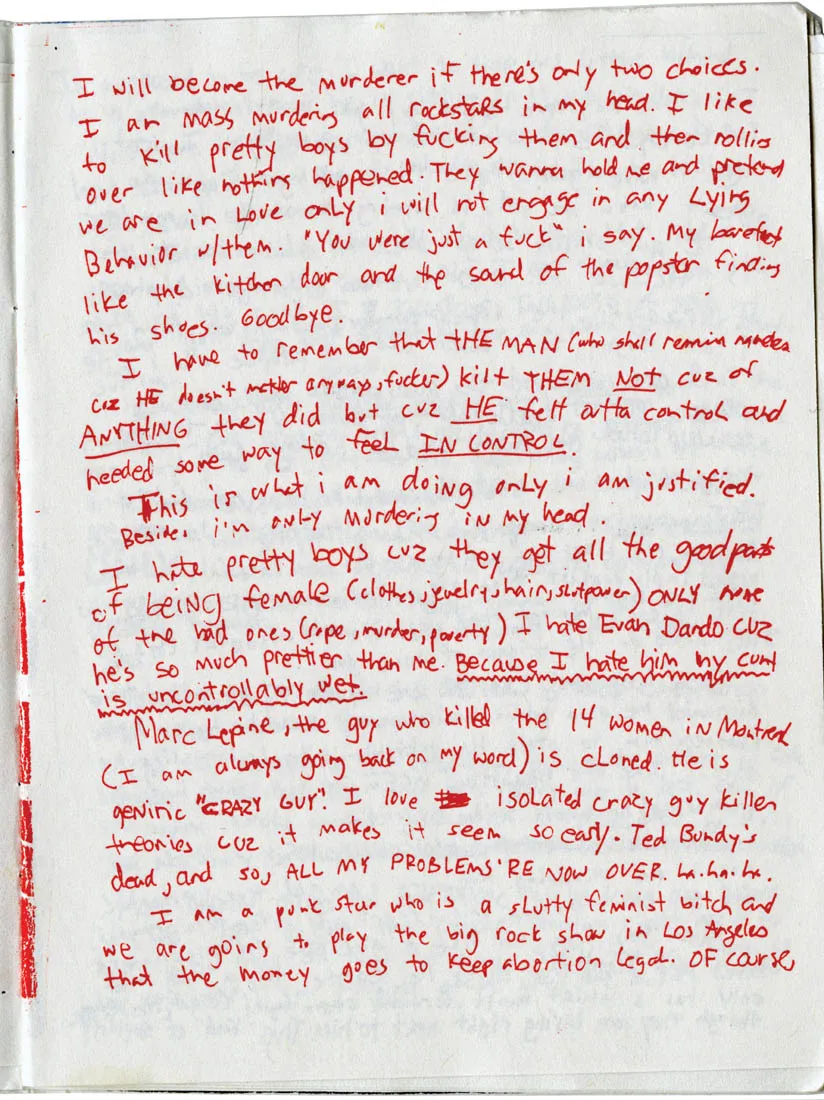 I will become the murderer if there's only two choices.
I am mass murdering all rockstaRs in my head. I like
to kill pretty boys by fucking them and then rolling
over like nothing happened. They wanna hold me and pretend
we are in Love only i will not engage in any Lying
Behavior w/them. "You were just a fuck" i say. My barefeet
like the kitchen door and the sound of the popstar finding
his shoes. Goodbye.
I have to remember that THE MAN (who shall remain
cuz HE doesn't matter anyways, fucker) kilt THEM NOT cuz of
ANYTHING they did but cuz HE felt outta control and
needed some way to feel IN CONTROL.
This is what i am doing only i am justified.
Beside, i'm only Murdering in my head.
I hate pretty boys cuz they get all the good parts
of BEING female (clothes, jewelry, hair, slutpower) ONLY none
of the bad ones (rape, murder, poverty) I hate Evan Dando cuz
he's so much prettier than me. Because I hate him my cunt
is uncontrollably wet.
Marc Lepine, the guy who killed the 14 women in Montreal
(I am always going back on my word) is cloned. He is
geniric "CRAZY GUY". I love isolated crazy guy killer
theories cuz it makes it seem so easy. Ted Bundy's
dead, and so, ALL MY PROBLEMS'RE NOW OVER. ha.ha.ha.
I am a punk star who is a slutty feminist bitch and
we are going to play the big rock show in Los Angeles
that the money goes to keep abortion legal. OF course,